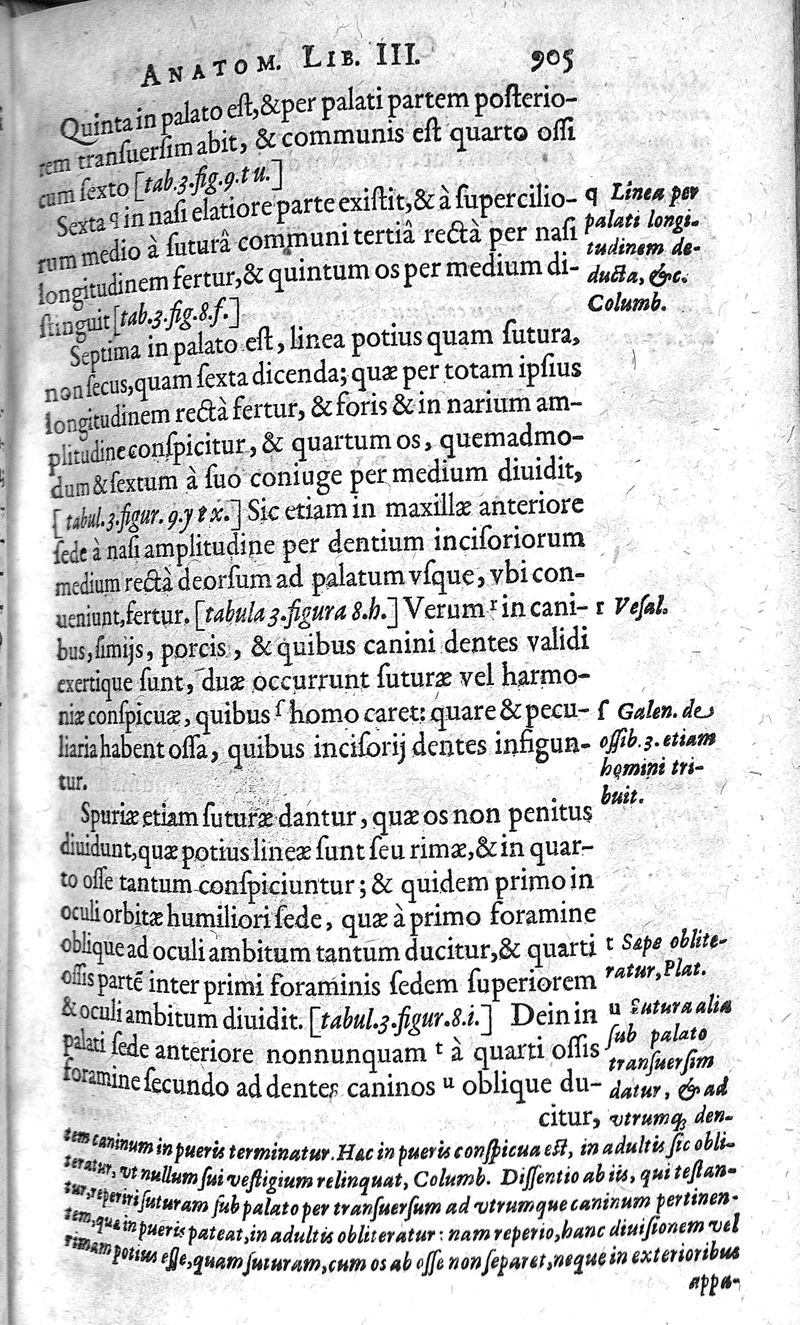 ANATOM. LIB. III. 905
Quinta in palato eſt, &per palati partem poſterio-
rem tranſuerſim abit, & communis eſt quarto oſſi
cum ſexto [tab.3.fig.9.t u.]
Sexta q in naſi elatiore parte exiſtit,& à ſupercilio-
rum medio à ſuturâ communi tertiâ rectà per naſi
longitudinem fertur,& quintum os per medium di-
ſtinguit [tab.3.fig.8.f.]
Septima in palato eſt, linea potius quam ſutura,
non ſecus, quam ſexta dicenda; quæ per totam ipſius
longitudinem rectà fertur, & foris & in narium am-
plitudine conſpicitur, & quartum os, quemadmo-
dum & ſextum à ſuo coniuge per medium diuidit,
[tabul.3.figur. 9.y & x.] Sic etiam in maxillæ anteriore
ſede à naſi amplitudine per dentium inciſoriorum
medium rectà deorſum ad palatum vſque, vbi con-
ueniunt, fertur. [tabula 3.figura 8.h.] Verum r in cani-
bus, ſimijs, porcis, & quibus canini dentes validi
exertique ſunt, duæ occurrunt ſuturæ vel harmo-
niæ conſpicuæ, quibus ſ homo caret: quare & pecu-
liaria habent oſſa, quibus inciſorij dentes infigun-
tur.
Spuriæ etiam ſuturæ dantur, quæ os non penitus
diuidunt, quæ potius lineæ ſunt ſeu rimæ, & in quar-
to oſſe tantum conſpiciuntur; & quidem primo in
oculi orbitæ humiliori ſede, quæ à primo foramine
oblique ad oculi ambitum tantum ducitur, & quarti
oſſis partẽ inter primi foraminis ſedem ſuperiorem
& oculi ambitum diuidit. [tabul.3.figur.8.i.] Dein in
palati ſede anteriore nonnunquam t à quarti oſſis
foramine ſecundo ad dentes caninos u oblique du-
citur,
q Linea per
palati longi-
tudinem de-
ducta, &c.
Columb.
r Veſal.
ſ Galen. de
oſſib. 3. etiam
homini tri-
buit.
t Sæpe oblite-
ratur, Plat.
u Sutura alia
ſub palato
tranſuerſim
datur, & ad
vtrumq; den-
tem caninum in pueris terminatur. Hæc in pueris conſpicua eſt, in adultis ſic obli-
teratur, vt nullum ſui veſtigium relinquat, Columb. Diſſentio ab iis, qui teſtan-
tur, reperiri ſuturam ſub palato per tranſuerſum ad vtrumque caninum pertinen-
tem, quæ in pueris pateat, in adultis obliteratur: nam reperio, hanc diuiſionem vel
rimam potius eſſe, quam ſuturam, cum os ab oſſe non ſeparet, neque in exterioribus
appa-